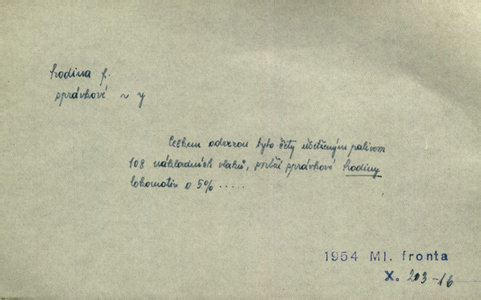 hodina f.
správkové ~ y
Celkem odvezou tyto čety ušetřeným palivem
108 nákladních vlaků, sníží správkové hodiny
lokomotiv o 5% .....
1954 Ml. fronta
X. 203-16